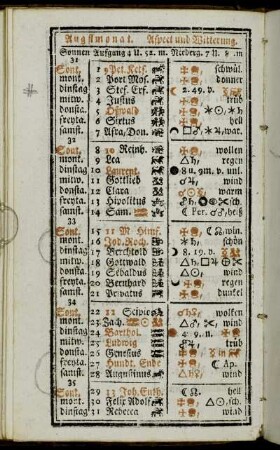 Augstmonat. Aspect und Witterung.
Sonnen Aufgang 4 U. 52. m. Niderg. 7 U. 8 .m
31
Sont. 1 9 Pet. Ketf. schwül.
mont. 2 Port Mos. donner
dinstag 3 Stef. Erf. 2. 49. v.
mitw. 4 Justus trüb
donsta. 5 Oswald
freyta. 6 Sixtus hell
samst. 7 Afra, Don. wat.
32
Sont. 8 10 Reinh. wolken
mont. 9 Lea regen
dinstag 10 Laurent. 8 u. 9m. v. unl.
mitw. 11 Gottlieb wind
donsta. 12 Clara warm
freyta. 13 Hipolitus sch.
samst. 14 Sam. Per. heiß
33
Sont. 15 11 M Himf. win.
mont. 16 Jod. Roch. schön
dinstag 17 Berchtold 8. 19. v.
mitw. 18 Gottwald
donsta. 19 Sebaldus wind
freyta. 20 Bernhard regen
samst. 21 Privatus dunkel
34
Sont. 22 12 Scipio wolken
mont. 23 Zach. wind
dinstag 24 Barthol. 4. 9. n.
mitw. 25 Ludwig trüb
donsta. 26 Genesius in
freyta. 27 Hundt. Ende Ap.
samst. 28 Augustinus wind
35
Sont. 29 13 Joh. Enth. hell
mont. 30 Felix Adolf sch.
dinstag 31 Rebecca wind